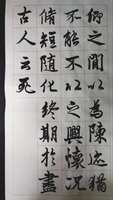 仰之間以為陳迹猶
不能不以之興懷況
脩短随化終期於盡
古人云死